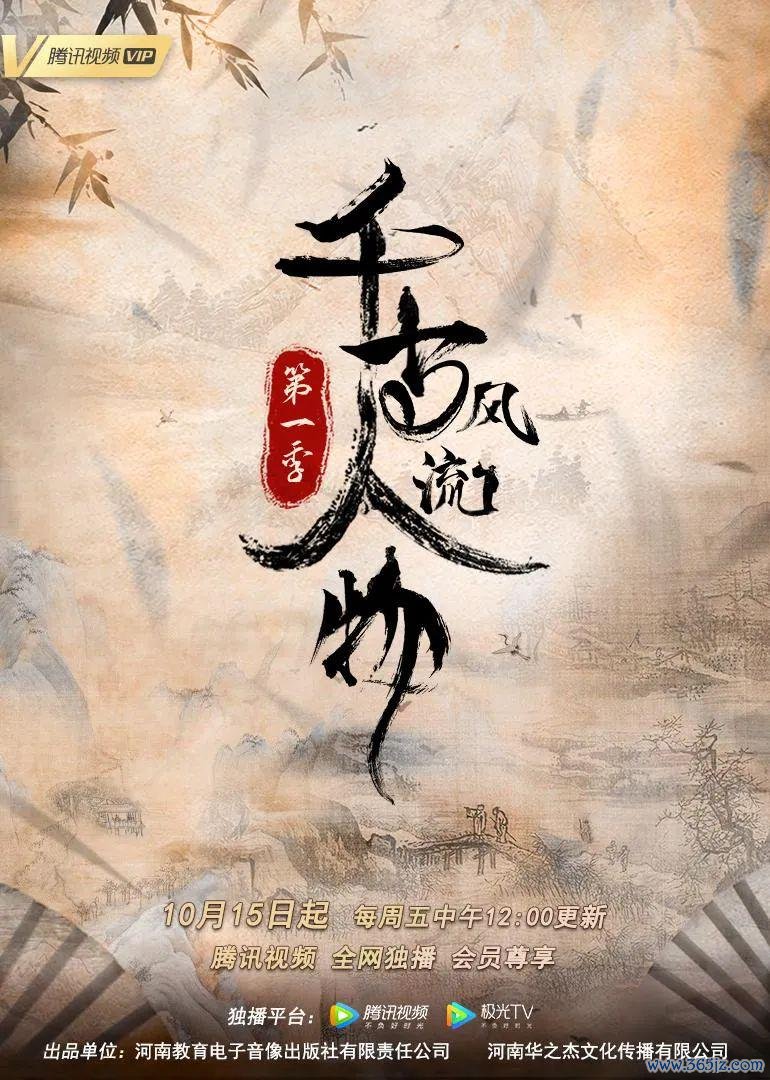 腾讯视频 VIP
千古风流人物
第一季
10月15日起 每周五中午12:00更新
腾讯视频 全网独播 会员尊享
独播平台: 腾讯视频 不负好时光 极光TV 不负好时光
出品单位: 河南教育电子音像出版社有限责任公司 河南华之杰文化传播有限公司
www.365jz.com